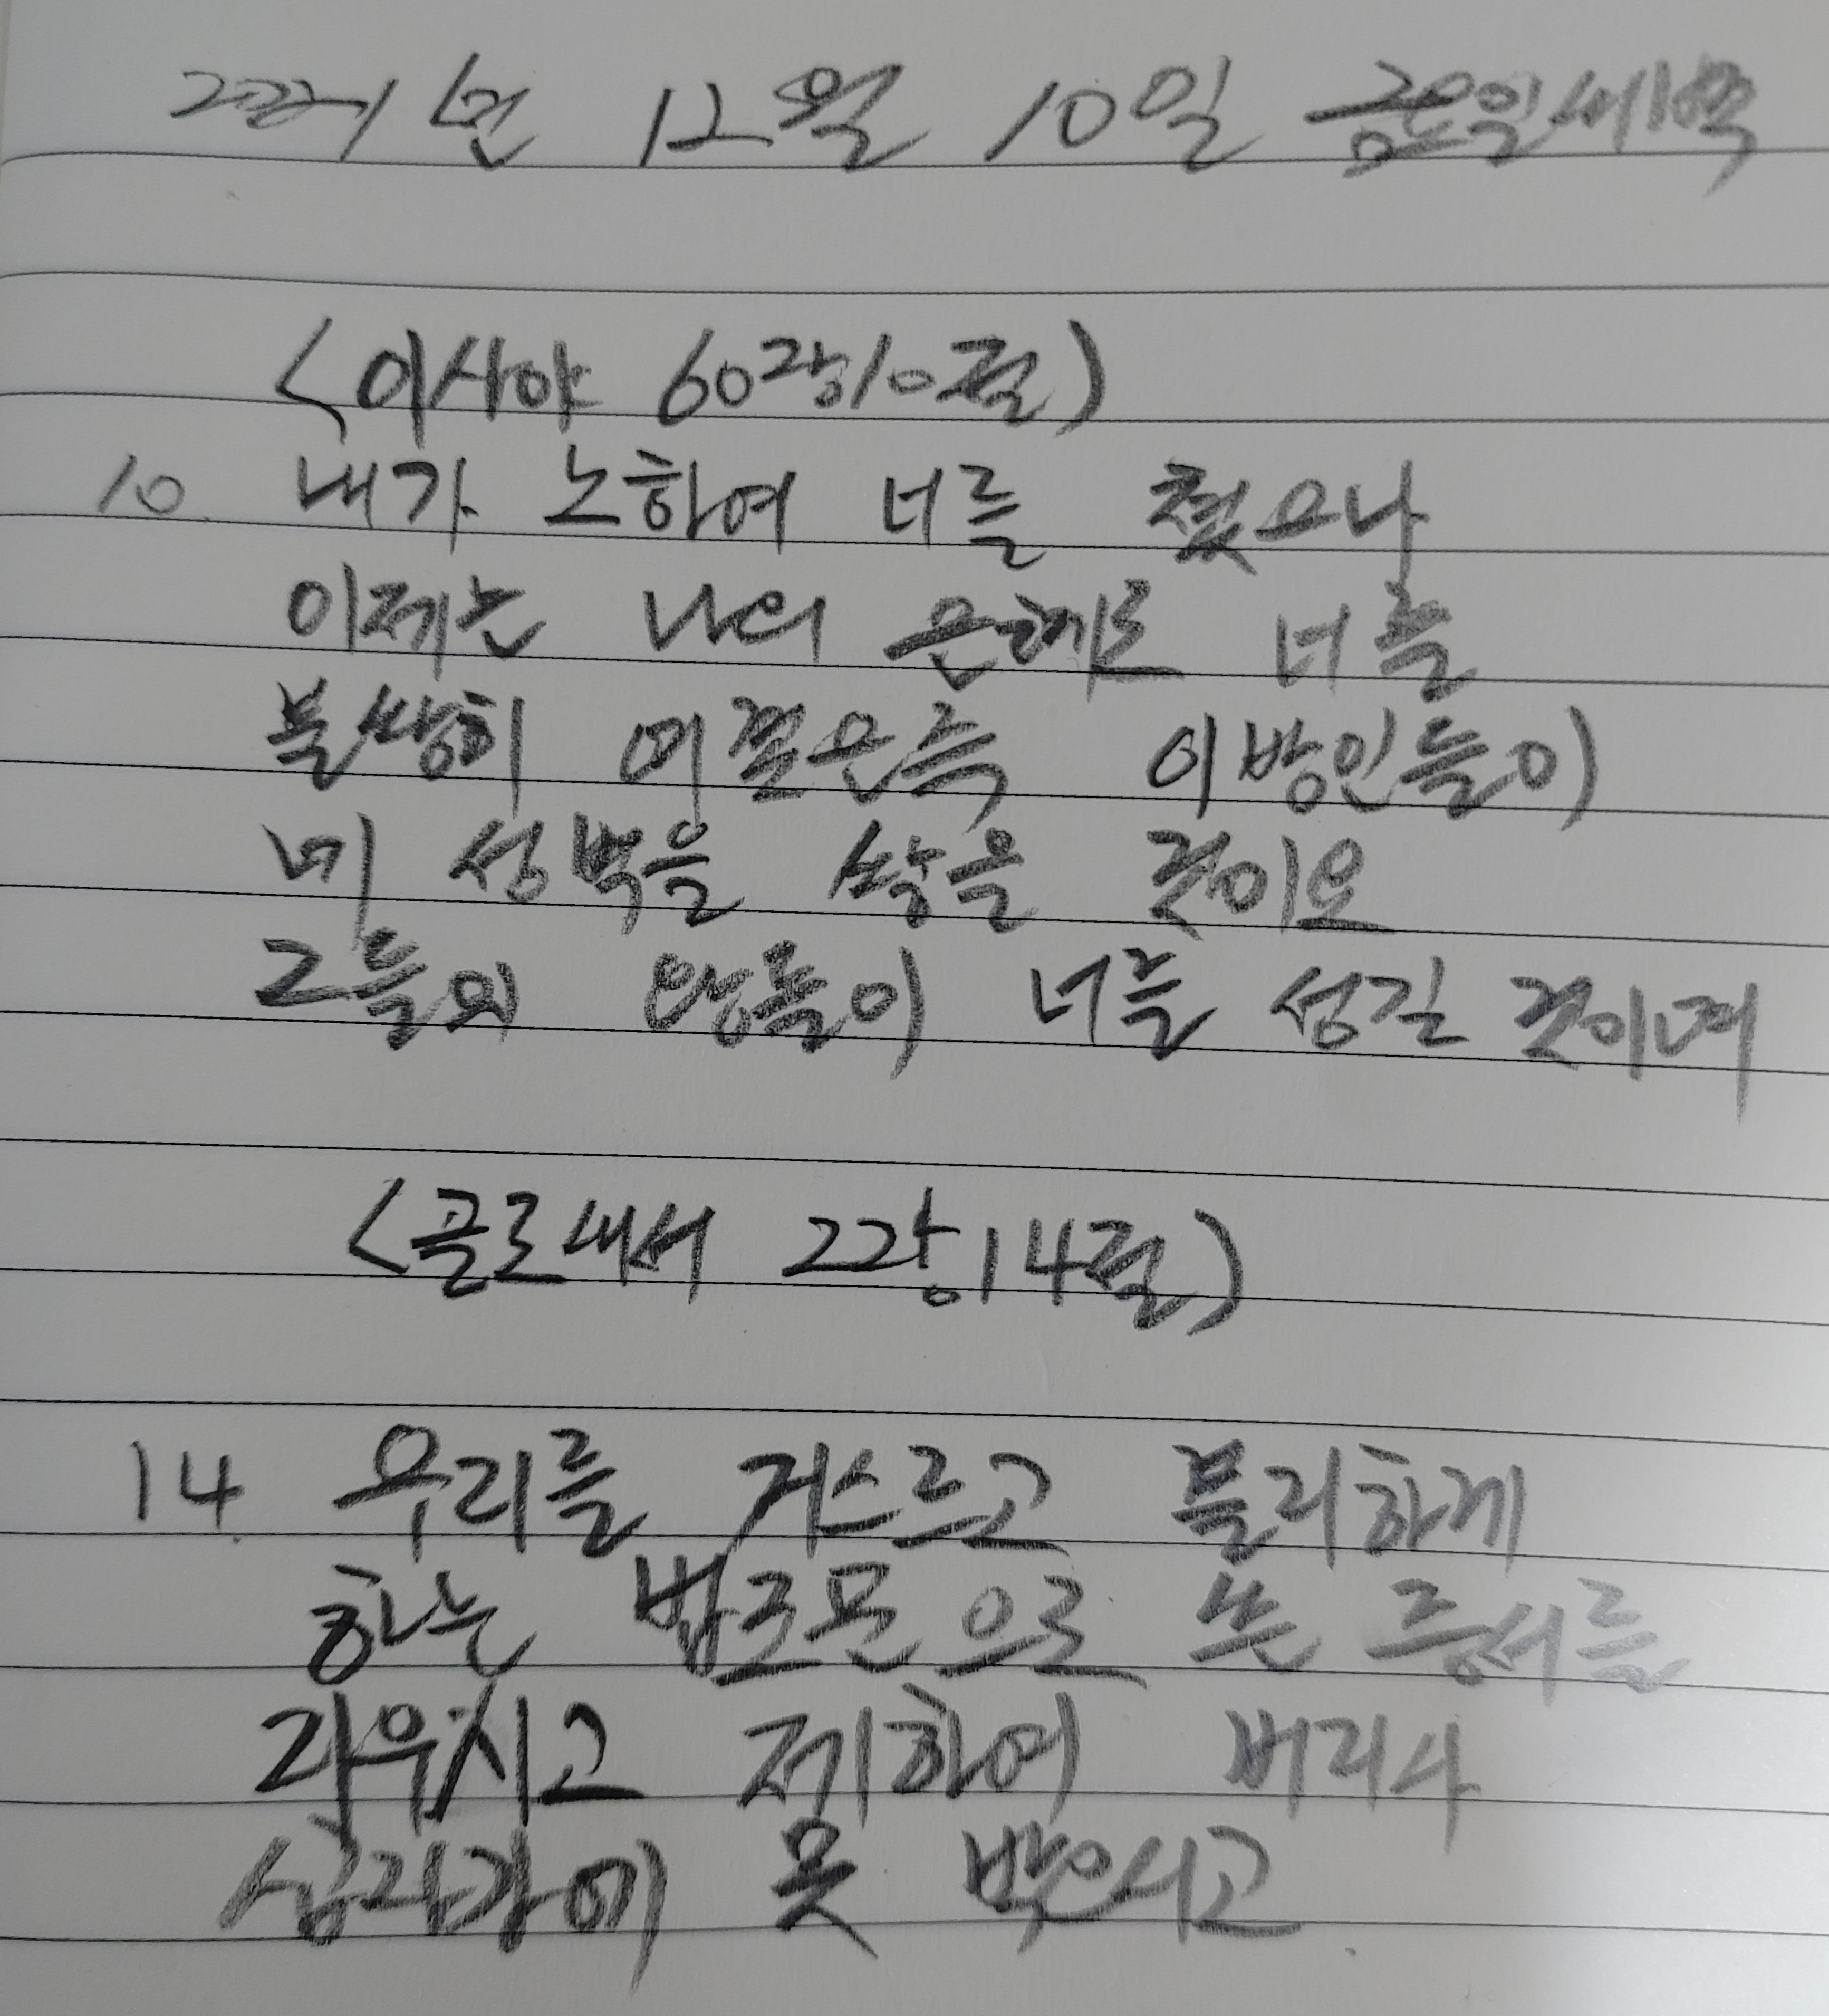 2021년 12월 10일 금요일새벽
<이사야 60장10절>
10. 내가 노하여 너를 쳤으나
이제는 나의 은혜로 너를
불쌍히 여겼은즉 이방인들이
네 성벽을 쌓을 것이요
그들의 왕들이 너를 섬길 것이며
<골로새서 2장14절>
14. 우리를 거스르고 불리하게
하는 법조문으로 쓴 증서를
지우시고 제하여 버리사
십자가에 못 박으시고